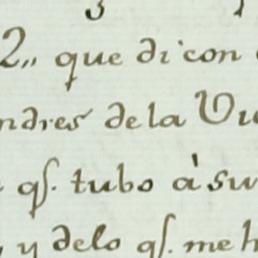 2,, que dicon
ndres de la Vi
qe. tubo à su
y delo qe. me h